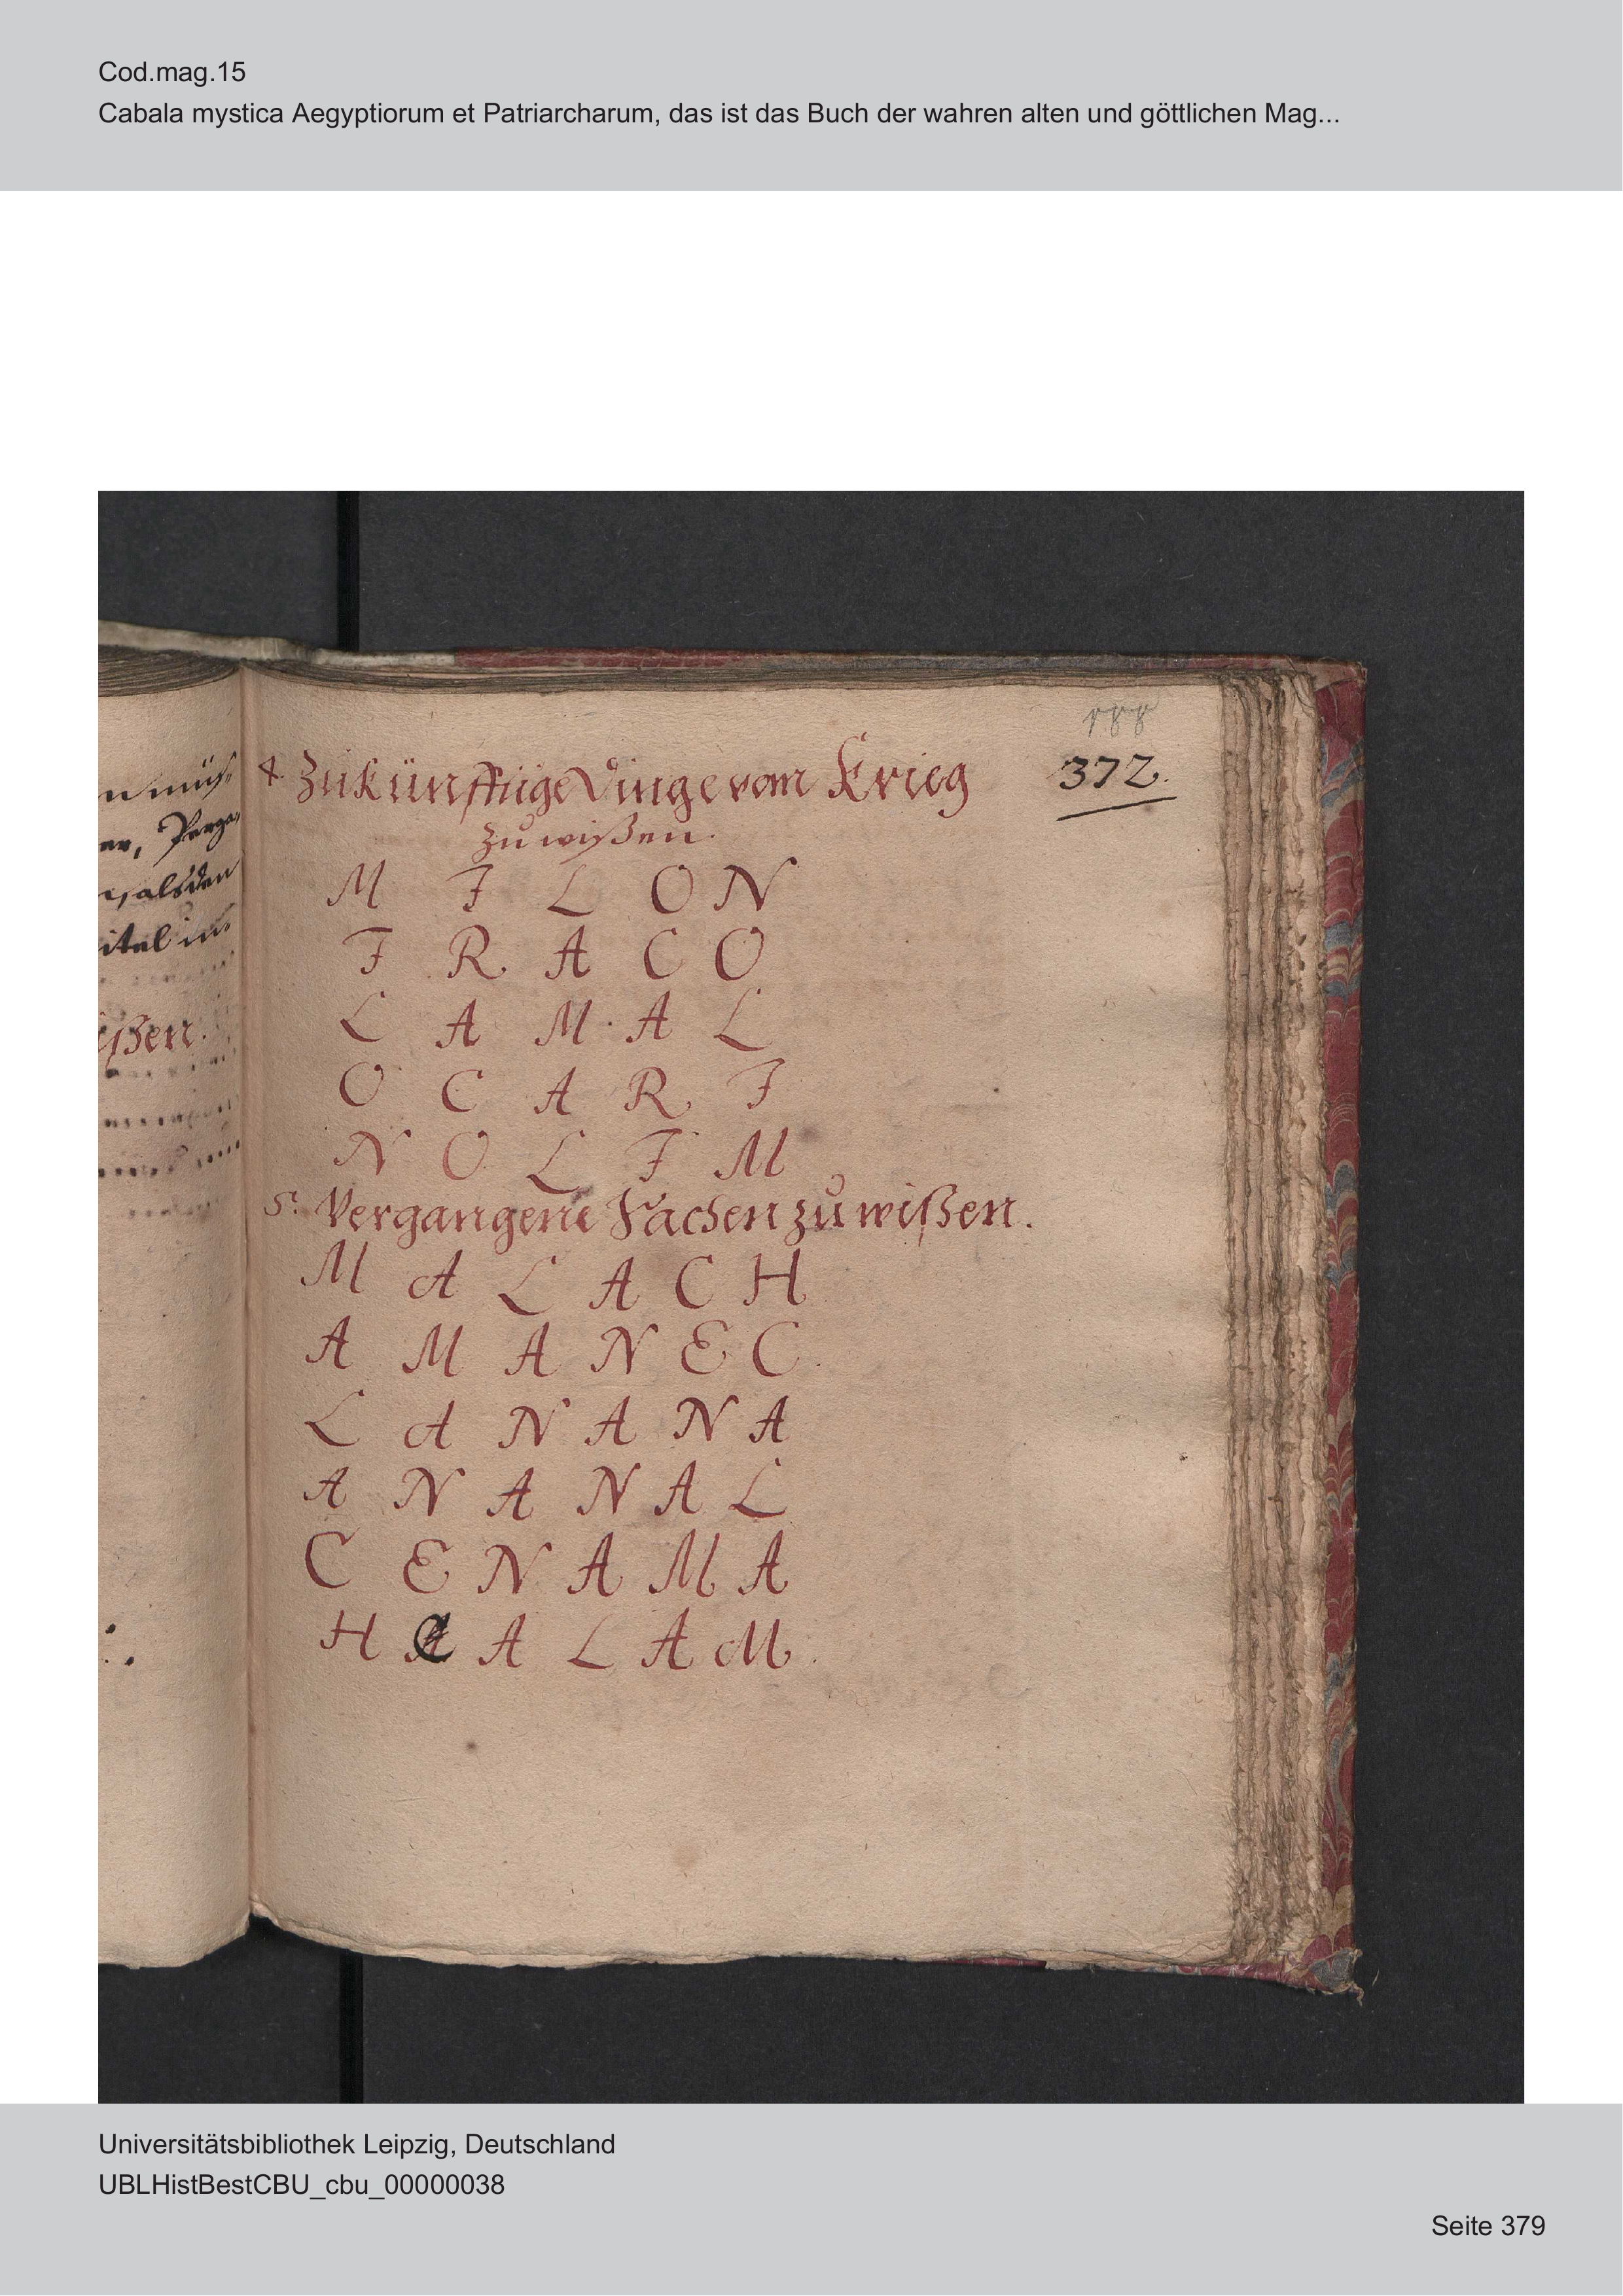 Cod.mag.15
Cabala mystica Aegyptiorum et Patriarcharum, das ist das Buch der wahren alten und göttlichen Mag...
n müß
er, Perga
alsdan
itel in
ißen.
188
372.
4. Zukünfftige Dinge vom Krieg
zu wißen.
M I L O N
I R A C O
L A M A L
O C A R I
N O L I M
5. Vergangene Sachen zu wißen.
M A L A C H
A M A N E C
L A N A N A
A N A N A L
C E N A M A
H C A L A M.
Universitätsbibliothek Leipzig, Deutschland
UBLHistBestCBU_cbu_00000038
Seite 379